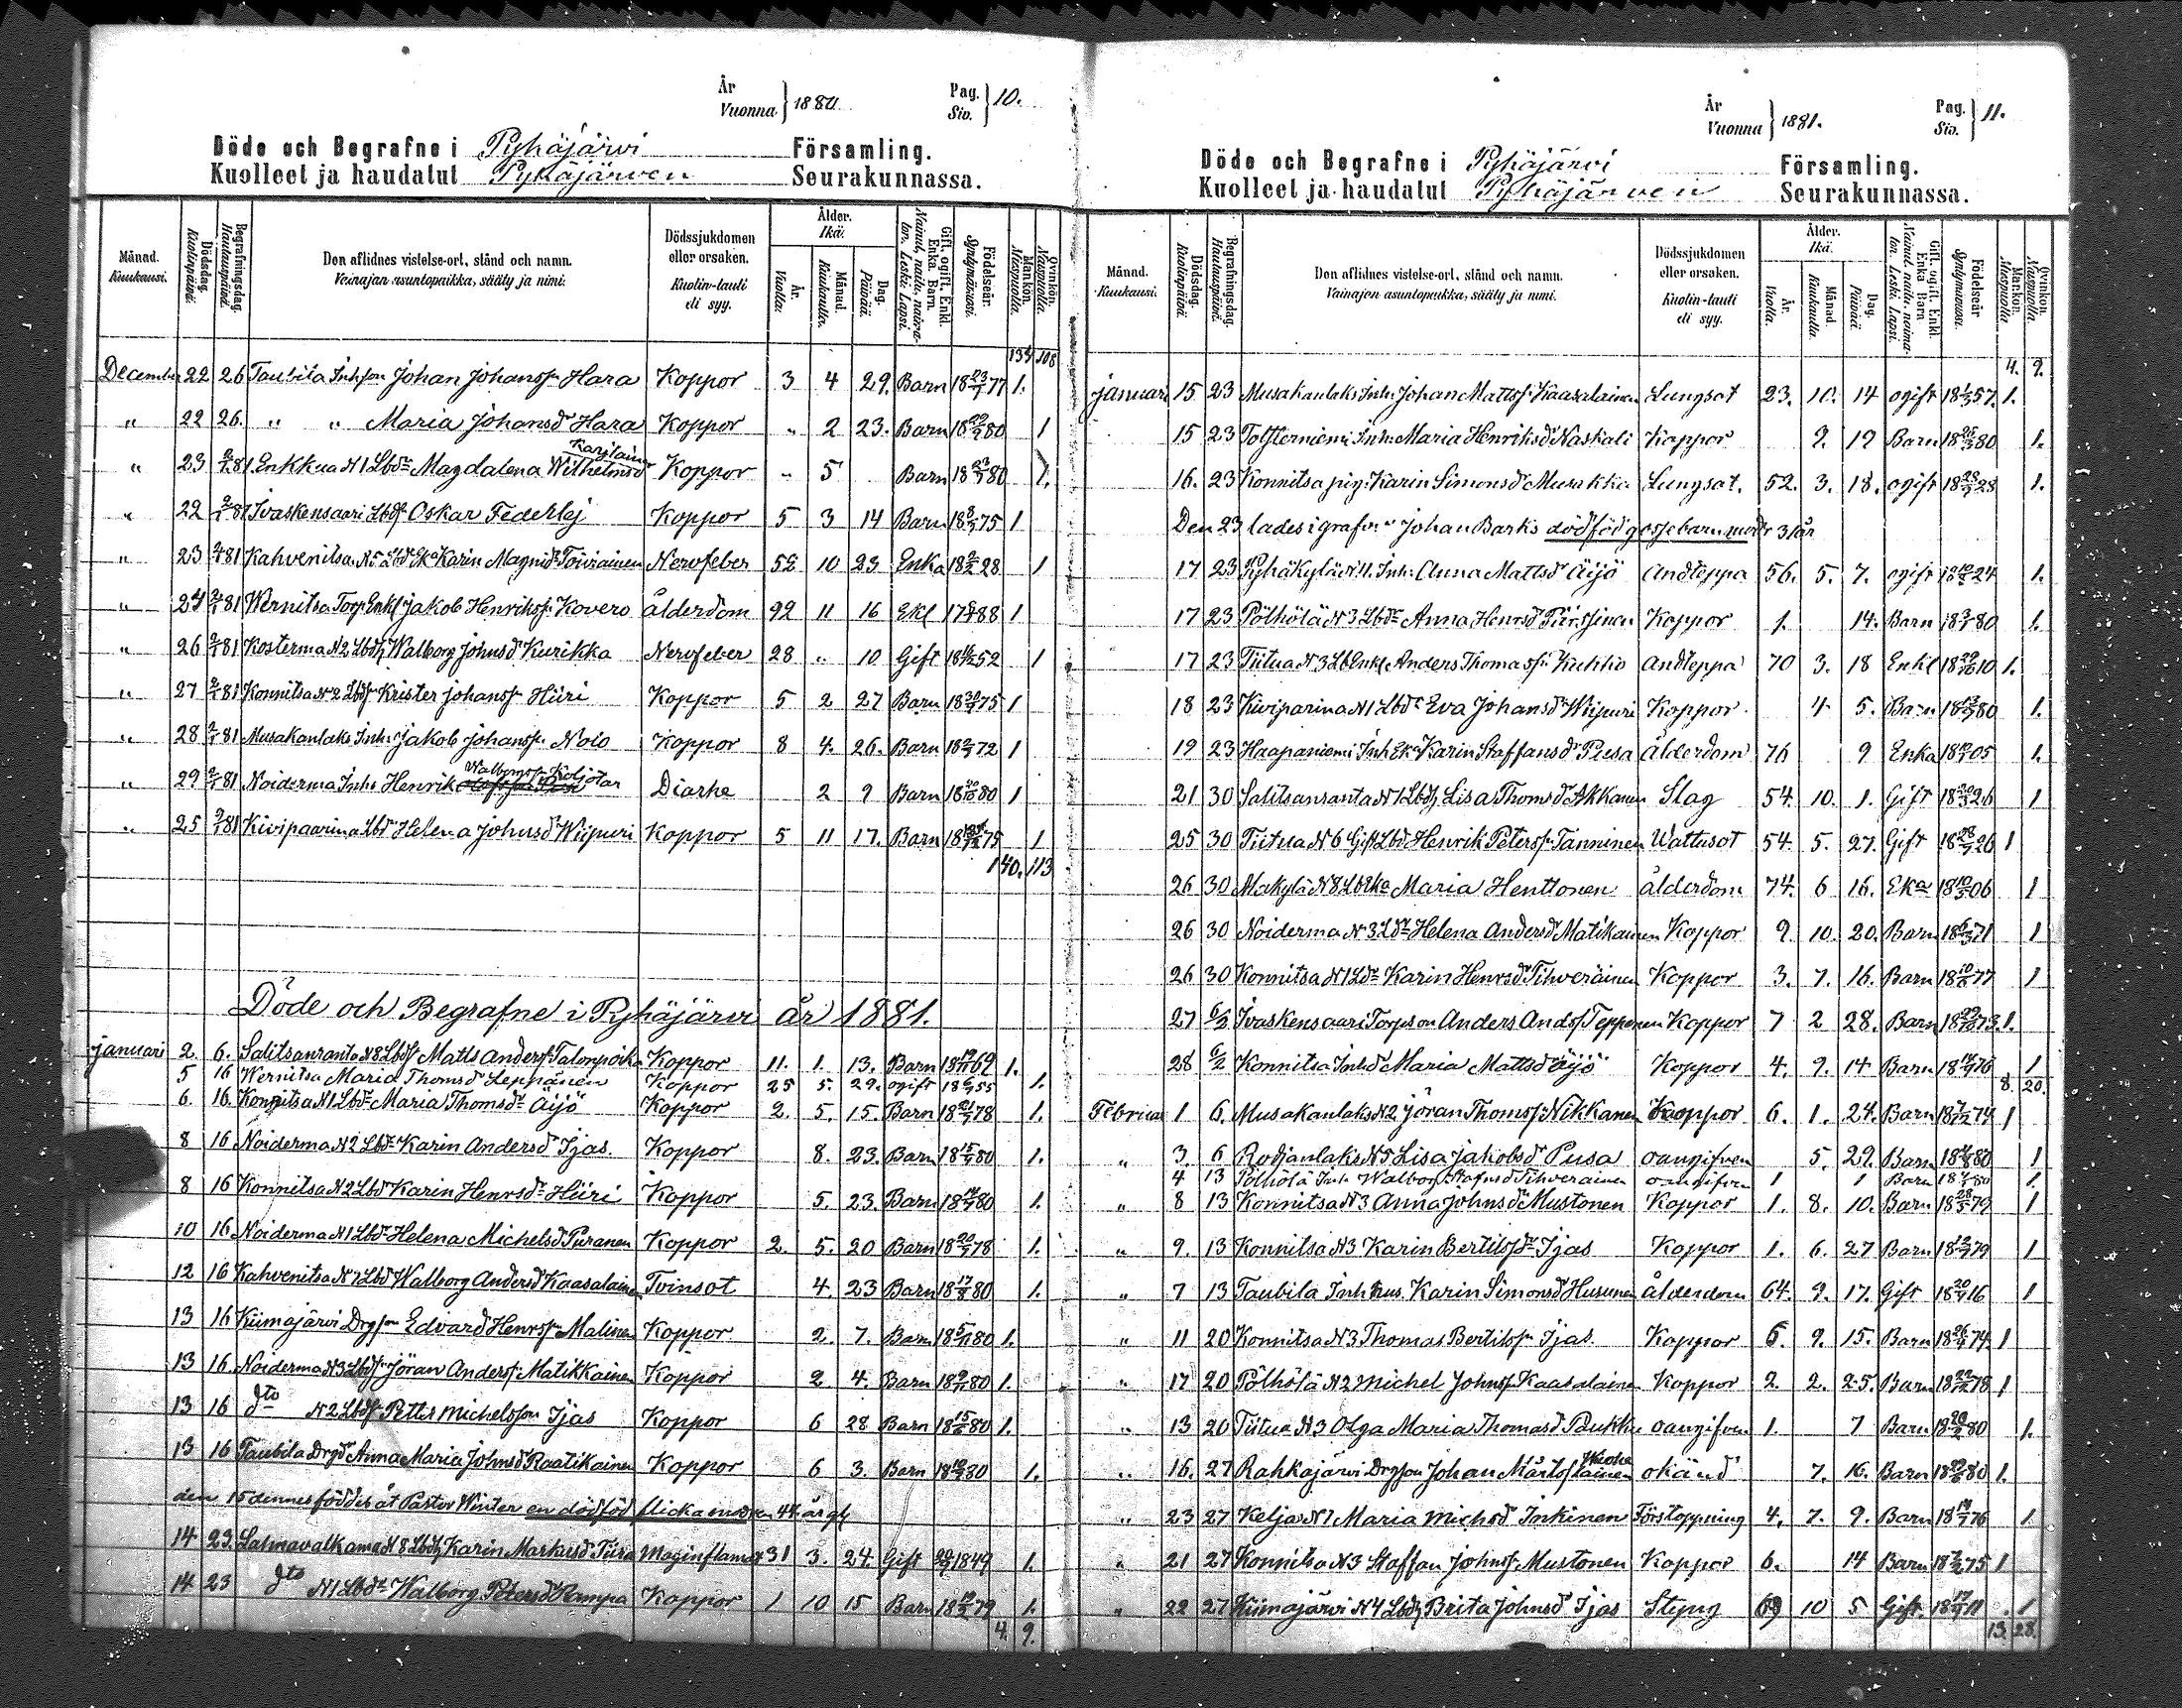 År
Vuonna } 1880. Pag. Siv. } 10.
Döde och Begrafne i Pyhäjärvi Församling.
Kuolleet ja haudatut Pyhäjärwen Seurakunnassa.
Månad. Kuukausi. Dödsdag. Kuolinpäivä. Begrafningsdag. Hautauspäivä. Den aflidnes vistelse-ort, stånd och namn. Vainajan asuntopaikka, sääty ja nimi. Dödssjukdomen eller orsaken. Kuolin-tauti eli syy. Ålder. Ikä. År. Vuotta. Månad. Kuukautta. Dag. Päivää. Gift, ogift, Enkl. Enka. Barn. Nainut, naitu, naimaton. Leski. Lapsi. Födelseår. Syntymäsuosi. Mankön. Miespuolia. Qvinkön. Naispuolia.
134 108
December 22 26 Taubila Inh.son Johan Johanss. Hara Koppor 3 4 29. Barn 18 23/7 77 1.
" 22 26. " " Maria Johansdr Hara Koppor " 2 23. Barn 18 29/9 80 1
" 23 2/1 81 Enkkua N1 Lbdr Magdalena Wilhelmsd Karjlain Koppor " 5 Barn 18 23/7 80 1.
" 22 2/1 81 Ivaskensaari Lbdf Oskar Federlej Koppor 5 3 14 Barn 18 8/9 75 1
" 23 2/1 81 Kahvenitsa N5 Lbd Eka Karin Magnidr Toiviainen Nervfeber 52 10 23 Enka 18 2/2 28 1
" 24 2/1 81 Wernitsa Torp Enkl Jakob Henrikss. Kovero ålderdom 92 11 16 Ekl 17 88 1
" 26 2/1 81 Kosterma N2 Lbdh Walborg Johnsdr Kurikka Nervfeber 28 " 10 Gift 18 16/12 52 1
" 27 2/1 81 Konnitsa N2 Lbdf Krister Johanss. Hiiri Koppor 5 2 27 Barn 18 30/9 75 1
" 28 2/1 81 Musakanlaks Inh. Jakob Johanss. Noio Koppor 8 4. 26. Barn 18 2/8 72 1
" 29 2/1 81 Noiderma Inh. Henrik Walborgs. Koljotar Diarhe 2 9 Barn 18 20/10 80 1
" 25 2/1 81 Kivipaarina Lbdr Helena Johnsd Wiipuri Koppor 5 11 17. Barn 18 75 1
140. 113
Döde och Begrafne i Pyhäjärvi år 1881.
Januari 2. 6. Salitsanranta N8 Lbdf Matts Anderss. Talonpoika Koppor 11. 1. 13. Barn 18 19/11 69 1.
5 16 Wernitsa Maria Thomsd Leppänen Koppor 25 5. 29. ogift 18 6/7 55 1.
6. 16. Konnitsa N1 Lbdr Maria Thomsdr Äijö Koppor 2. 5. 15. Barn 18 21/7 78 1.
8 16 Noiderma N2 Lbdr Karin Andersd Ijas Koppor 8. 23. Barn 18 15/4 80 1.
8 16 Konnitsa N2 Lbd Karin Henrsdr Hiiri Koppor 5. 23. Barn 18 14/7 80 1.
10 16 Noiderma N1 Lbdr Helena Michelsd Puranen Koppor 2. 5. 20 Barn 18 20/7 78 1.
12 16 Kahvenitsa N2 Lbd Walborg Andersd Kaasalainen Tvinsot 4. 23 Barn 18 17/8 80 1.
13 16 Kiimajärvi Drgson Edvard Henrss. Malinen Koppor 2. 7. Barn 18 5/11 80 1.
13 16. Noiderma N3 Lbdf Jöran Anderss. Matikkainen Koppor 2 4. Barn 18 9/11 80 1.
13 16 dto N2 Lbdf Petter Michelsson Ijas Koppor 6 28 Barn 18 15/6 80 1.
13 16 Taubila Drgd Anna Maria Johnsd Raatikainen Koppor 6 3. Barn 18 10/7 80 1.
den 15 dennes föddes åt Pastor Winter en dödföd flicka modren 44 år gl
14 23. Lahnavalkama N8 Lbdh Karin Markusdr Tiira Maginflamat 31 3. 24. Gift 1849 1.
14 23 dto N1 Lbdr Walborg Petersd Kampa Koppor 1 10 15 Barn 18 79 1.
4. 9.
År
Vuonna } 1881. Pag. Siv. } 11.
Döde och Begrafne i Pyhäjärvi Församling.
Kuolleet ja haudatut Pyhäjärven Seurakunnassa.
Månad. Kuukausi. Dödsdag. Kuolinpäivä. Begrafningsdag. Hautauspäivä. Den aflidnes vistelse-ort, stånd och namn. Vainajan asuntopaikka, sääty ja nimi. Dödssjukdomen eller orsaken. Kuolin-tauti eli syy. Ålder. Ikä. År. Vuotta. Månad. Kuukautta. Dag. Päivää. Gift, ogift, Enkl. Enka Barn Nainut, naitu, naimaton. Leski. Lapsi. Födelseår Syntymävuosi. Mankön. Miespuolia Qvinkön. Naispuolia.
4. 9.
Januari 15 23 Musakanlaks Inh. Johan Mattss. Kaasalainen Lungsot 23. 10. 14 ogift 18 1/3 57. 1.
15 23 Tolfterniemi Inh. Maria Henriksdr Naskali Koppor 9. 19 Barn 18 80 1.
16. 23 Konnitsa pig. Karin Simonsdr Musakka Lungsot. 52. 3. 18. ogift 18 28/9 28 1.
Den 23 lades i grafven Johan Barks dödföd gossebarn modr 31 år
17 23 Pyhäkylä N11. Inh. Anna Mattsdr Äijö Andteppa 56. 5. 7. ogift 18 24 1.
17 23 Pölhölä N3 Lbdr Anna Henrsd Koppor 1. 14. Barn 18 3/1 80 1.
17 23 Tiitua N3 Lb Enkl Anders Thomass. Kukko Andteppa 70 3. 18 Enkl 18 10 1.
18 23 Kiviparina N1 Lbdr Eva Johansdr Wiipuri Koppor. 4 5. Barn 18 80 1.
19 23 Haapaniemi Inh Eka Karin Staffansdr Pusa ålderdom 76 9 Enka 18 05 1.
21 30 Salitsanranta N1 Lbdh Lisa Thomsdr Akkanen Slag 54. 10. 1. Gift 18 20/3 26 1
25 30 Tiitua N6 Gift Lbd Henrik Peterss. Tanninen Wattusot 54. 5. 27. Gift 18 28/7 26 1
26 30 Makylä N8 Lb Eka Maria Henttonen ålderdom 74. 6 16. Eka 18 06 1
26 30 Noiderma N3 Ldr Helena Andersd Matikainen Koppor 9. 10. 20. Barn 18 6/3 71 1
26 30 Konnitsa N1 Ldr Karin Henrsdr Tihveräinen Koppor 3. 7. 16. Barn 18 77 1
27 6/2 Ivaskensaari Torpson Anders Andss. Tepponen Koppor 7 2 28. Barn 18 73. 1.
28 6/2 Konnitsa Inhdr Maria Mattsd Äijö Koppor 4. 9. 14 Barn 18 14/4 76 1
8. 20.
Februari 1 6. Musakanlaks N2 Jöran Thomss. Nikkanen Koppor 6. 1. 24. Barn 18 7/12 74 1
" 3. 6 Rodjanlaks N5 Lisa Jakobsd Pusa oangifven 5. 29. Barn 18 80 1
4 13 Pölhölä Inh. Walborg Stafnsd Tihverainen oangifven 1 1 Barn 18 80 1.
" 8 13 Konnitsa N3 Anna Johnsdr Mustonen Koppor 1. 8. 10. Barn 18 28/5 79 1
" 9. 13 Konnitsa N3 Karin Bertilsdr Ijas Koppor 1. 6. 27 Barn 18 12/7 79 1
" 7 13 Taubila Inh hus. Karin Simonsd Husunen ålderdom 64. 9. 17. Gift 18 20/4 16 1
" 11 20 Konnitsa N3 Thomas Bertilss. Ijas. Koppor 6. 9. 15. Barn 18 26/4 74. 1
" 17 20 Pölhölä N2 Michel Johnss. Kaasalainen Koppor 2. 2. 25. Barn 18 22/12 78 1
" 13 20 Tiitua N3 Olga Maria Thomasd Paukku oangifven 1. 7 Barn 18 80 1.
" 16. 27 Rahkajärvi Drgson Johan Mårtss. okänd 7. 16. Barn 18 80 1.
" 23 27 Kelja N7 Maria Michsd Inkinen Förstoppning 4. 7. 9. Barn 18 14/7 76 1.
" 21 27 Konnitsa N3 Staffan Johnss. Mustonen Koppor 6. 14 Barn 18 7/2 75 1
" 22 27 Kiimajärvi N4 Lbdh Brita Johnsd Ijas Styng 69 10 5 Gift. 18 17/4 11 1
13. 28.